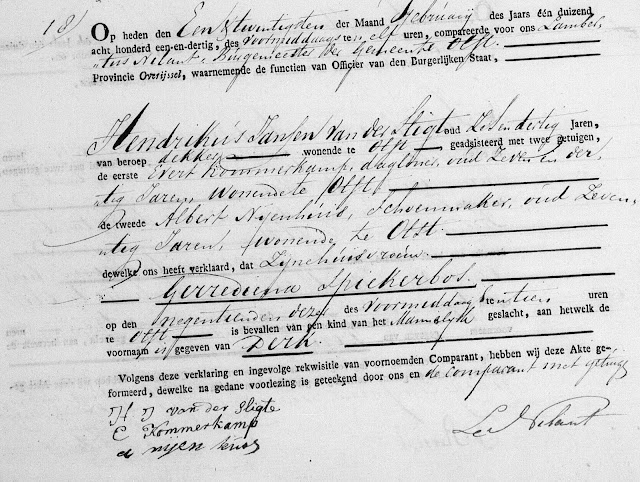 18
Op heden den Een & twintigsten der Maand February des Jaars één duizend
acht honderd een-en-dertig, des voormiddags ten elf uren, compareerde voor ons Lamber-
tus Nelant, Burgemeester der Gemeente Olst
Provincie Overijssel, waarnemende de functien van Officier van den Burgerlijken Staat,
Hendrikus Jansen van der Sligt oud Zes en dertig Jaren,
van beroep dekker wonende te Olst, geadsisteerd met twee getuigen,
de eerste Evert Kommerkamp, daglooner, oud Zeven en der-
tig Jaren, wonende te Olst
de tweede Albert Nijenhuis, Schoenmaker, oud Zeven-
tig Jaren, wonende te Olst
dewelke ons heeft verklaard, dat Zijn huisvrouw
Gerrediena Spickerbos
op den negentienden dezer des voormiddag tentien uren
te Olst is bevallen van een kind van het Mannelyk geslacht, aan hetwelk de
voornaam is gegeven van Derk
Volgens deze verklaring en ingevolge rekwisitie van voornoemden Comparant, hebben wij deze Akte ge-
formeerd, dewelke na gedane voorlezing is geteekend door ons en de comparant met getuige
H J van der Sligte
E Kommerkamp
a nijen huis